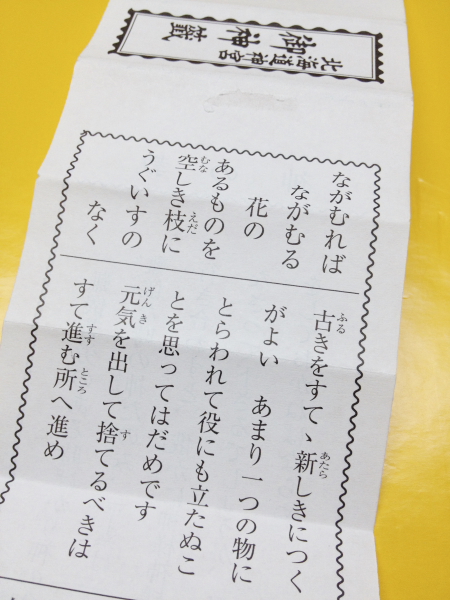 北海道神宮
御神籤
ながむれば
ながむる
花の
あるものを
空しき枝に
うぐいすの
なく
古きをすてゝ新しきにつく
がよい あまり一つの物に
とらわれて役にも立たぬこ
とを思ってはだめです
元気を出して捨てるべきは
すて進む所へ進め